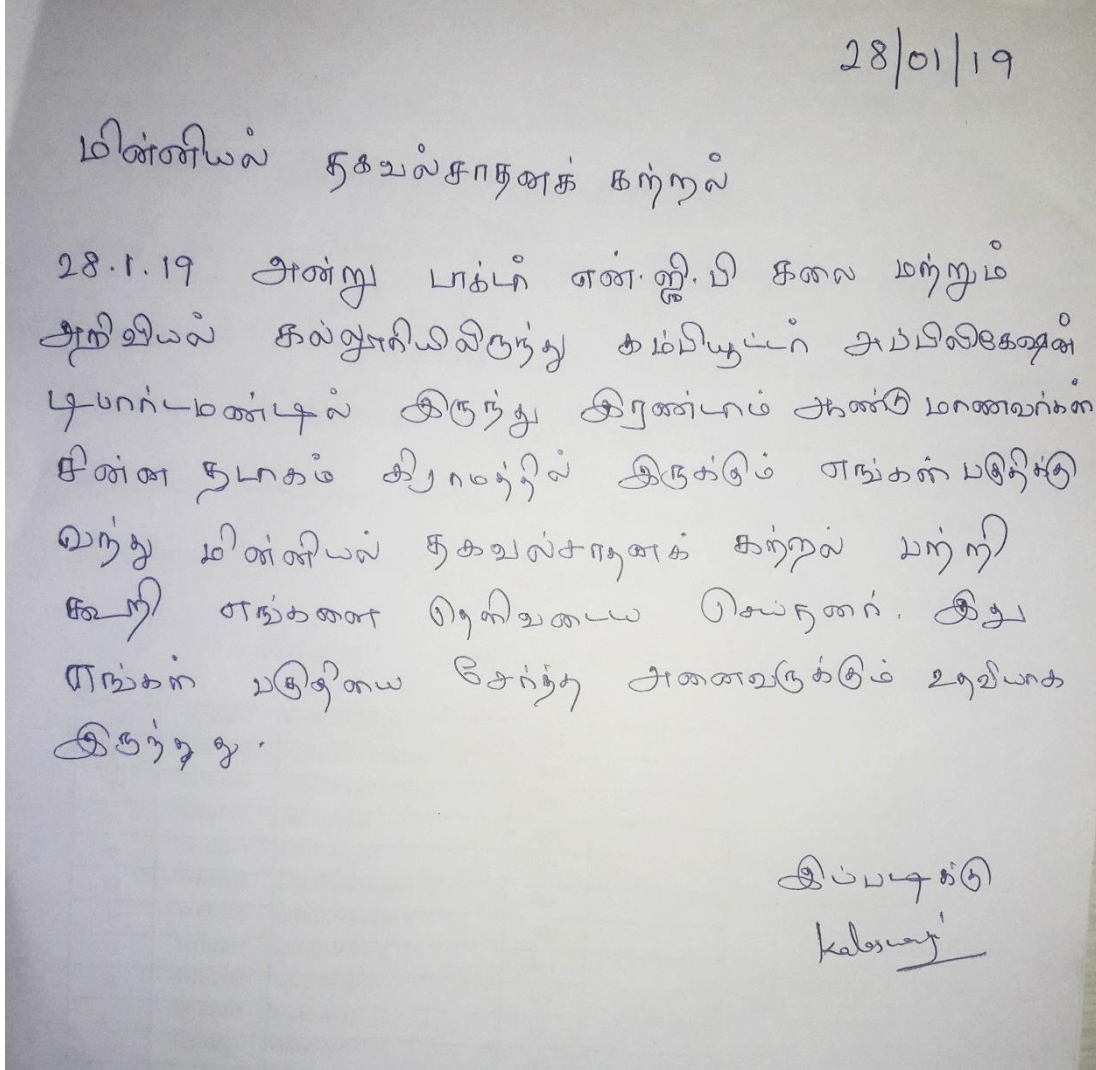 28/01/19
மின்னியல் தகவல்சாதனக் கற்றல்
28.1.19 அன்று டாக்டர் என்.ஜி.பி கலை மற்றும்
அறிவியல் கல்லூரியிலிருந்து கம்பியூட்டர் அப்பிலிகேஷன்
டிபார்டமண்டில் இருந்து இரண்டாம் ஆண்டு மாணவர்கள்
சின்ன தடாகம் கிராமத்தில் இருக்கும் எங்கள் பகுதிக்கு
வந்து மின்னியல் தகவல்சாதனக் கற்றல் பற்றி
கூறி எங்களை தெளிவடைய செய்தனர். இது
எங்கள் பகுதியை சேர்ந்த அனைவருக்கும் உதவியாக
இருந்தது.
இப்படிக்கு